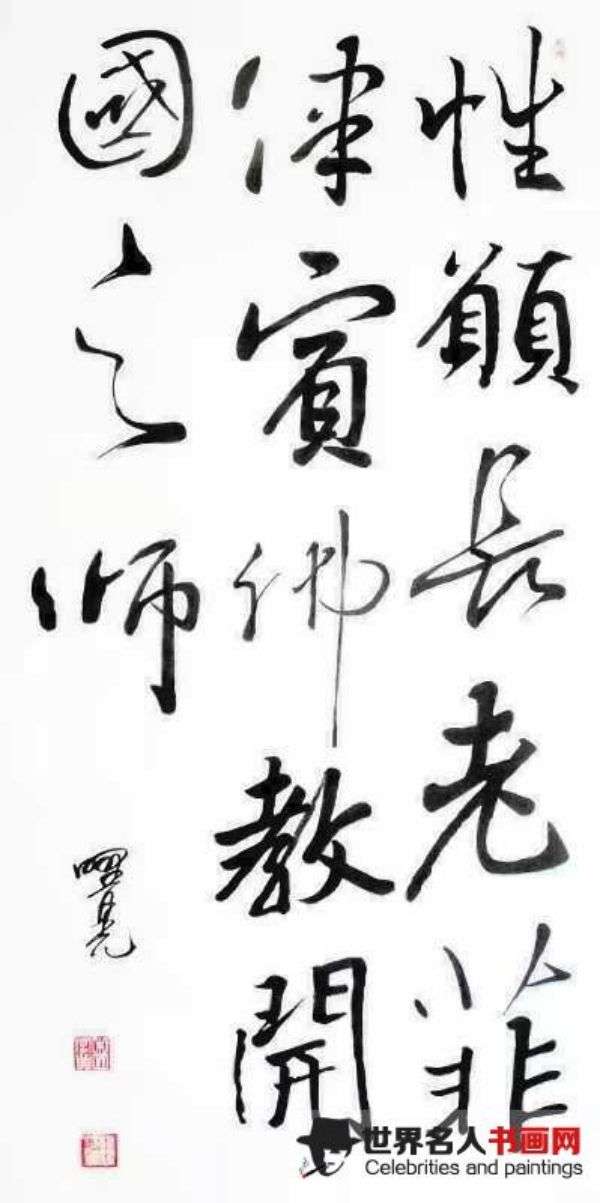 性願長老菲
律賓佛教開
國之师
世界名人书画网
Celebrities and paintings